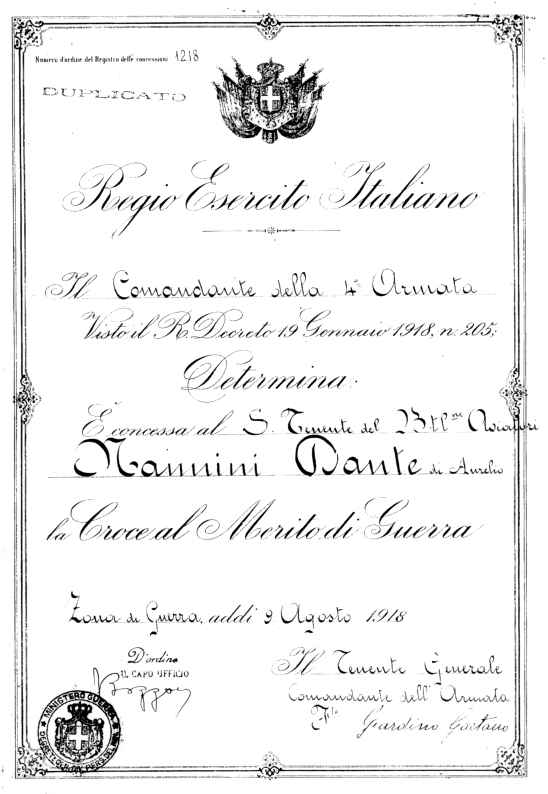 Numero d'ordine del Registro delle concessioni 1218
DUPLICATO
Regio Esercito Italiano
Il Comandante della 4ª Armata
Visto il R. Decreto 19 Gennaio 1918, n. 205;
Determina:
È concessa al S. Tenente del Btl.ne Aviatori
Nannini Dante di Aurelio
la Croce al Merito di Guerra
Zona di Guerra, addì 9 Agosto 1918
D'ordine
IL CAPO UFFICIO
Il Tenente Generale
Comandante dell'Armata
Fto Giardino Gaetano
MINISTERO GUERRA